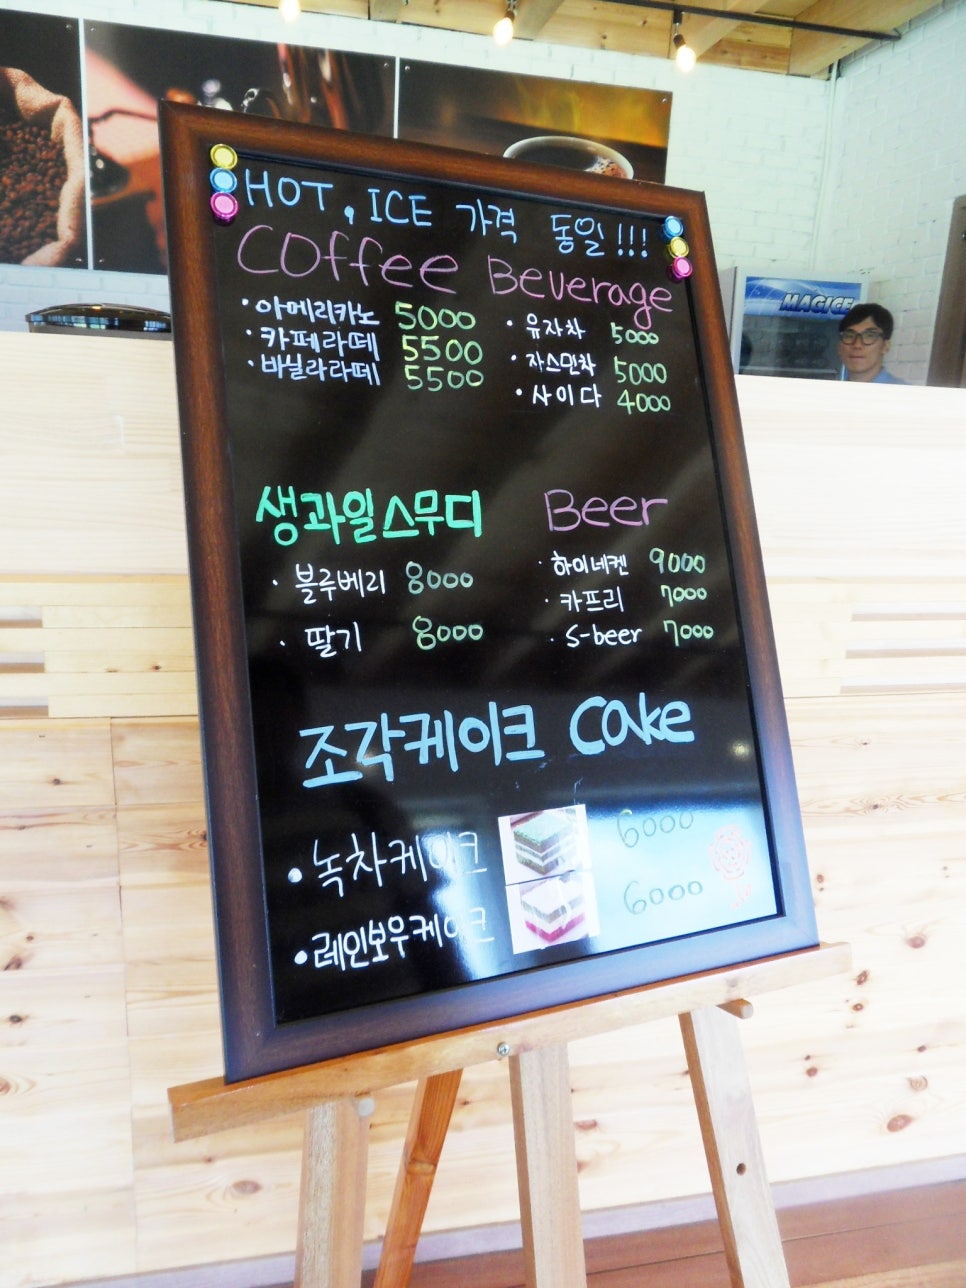 HOT, ICE 가격 동일!!!
Coffee
• 아메리카노 5000
• 카페라떼 5500
• 바닐라라떼 5500
Beverage
• 유자차 5000
• 자스민차 5000
• 사이다 4000
생과일스무디
• 블루베리 8000
• 딸기 8000
Beer
• 하이네켄 9000
• 카프리 7000
• S-beer 7000
조각케이크 Cake
• 녹차케이크 6000
• 레인보우케이크 6000
MAGICE